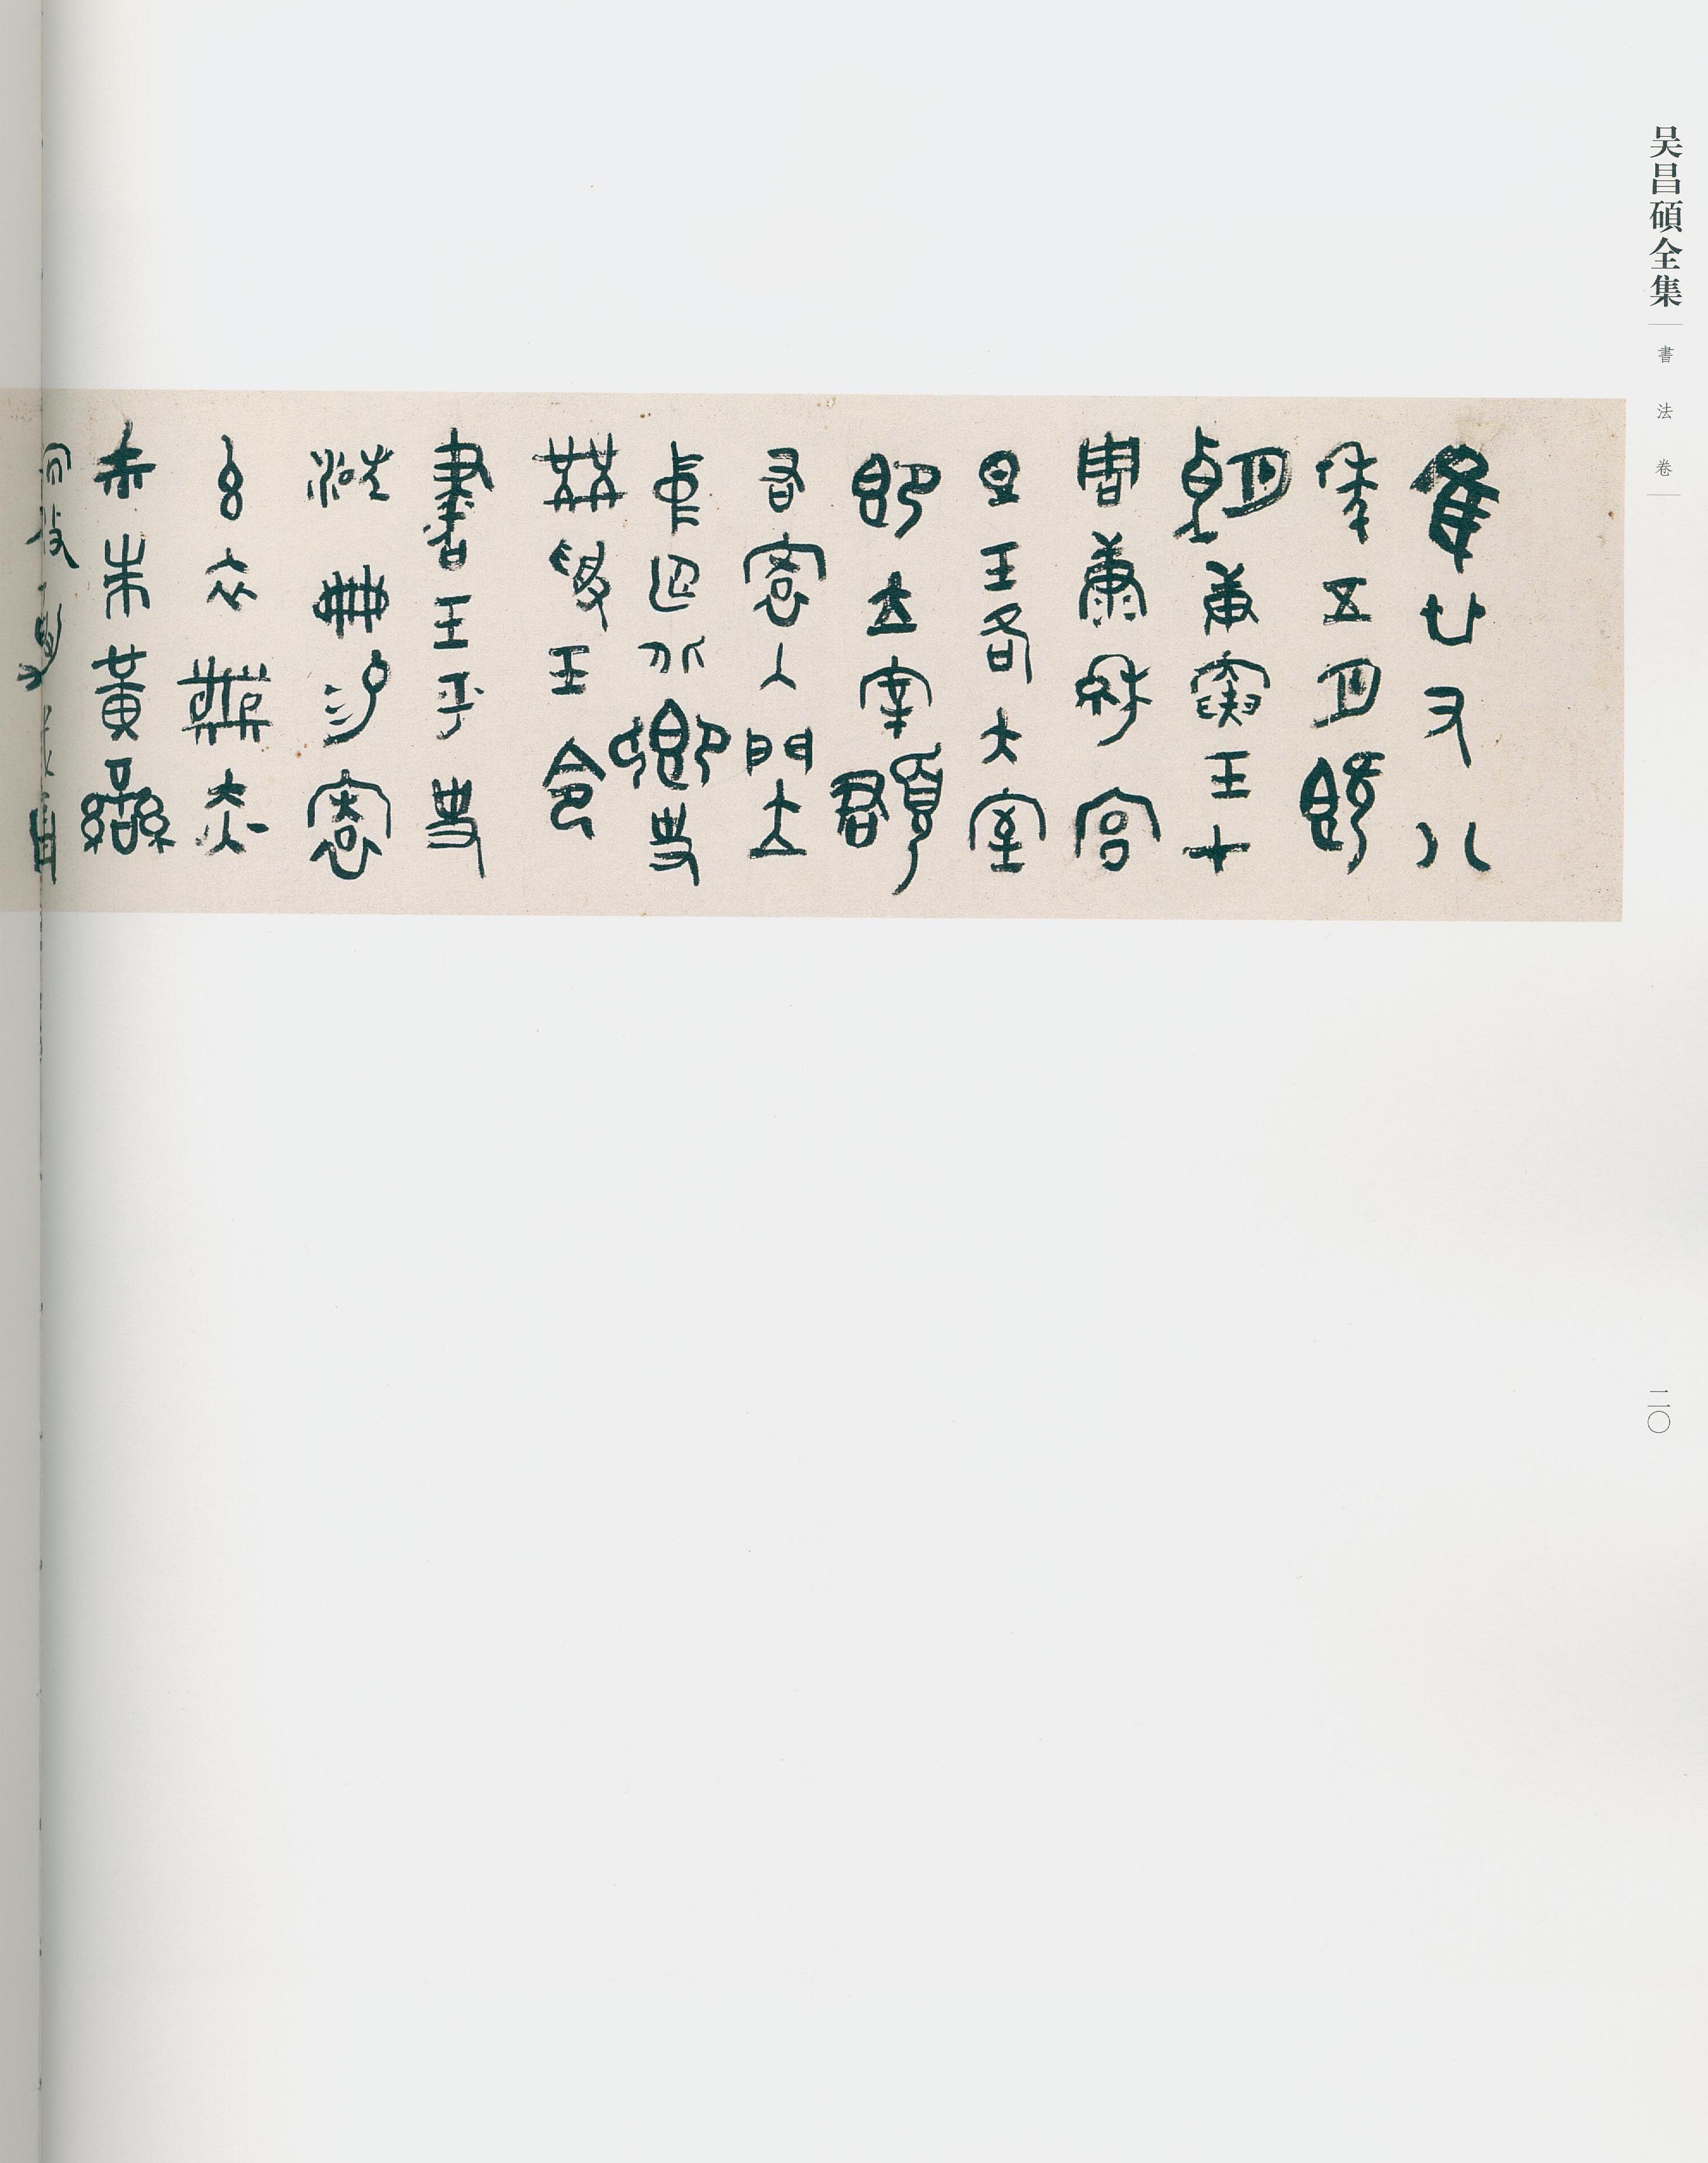 吴昌碩全集
書法卷
隹廿又八
年五月既
望庚寅王才
周康穆宮
旦王各大室
即立宰頵
右寰入門立
中廷北鄉史
受王令
書王乎史
淢冊易寰
玄衣黹赤
巿朱黃鑾
二〇